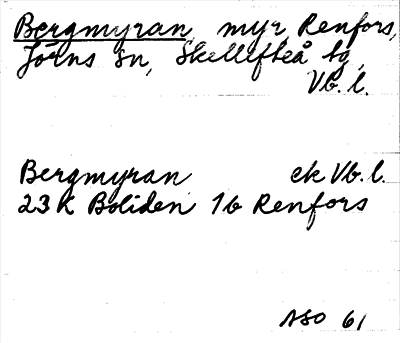 Bergmyran, myr, Renfors,
Jörns sn, Skellefteå kg,
Vb. l.
Bergmyran ek Vb. l.
23 K Boliden 1b Renfors
ASO 61